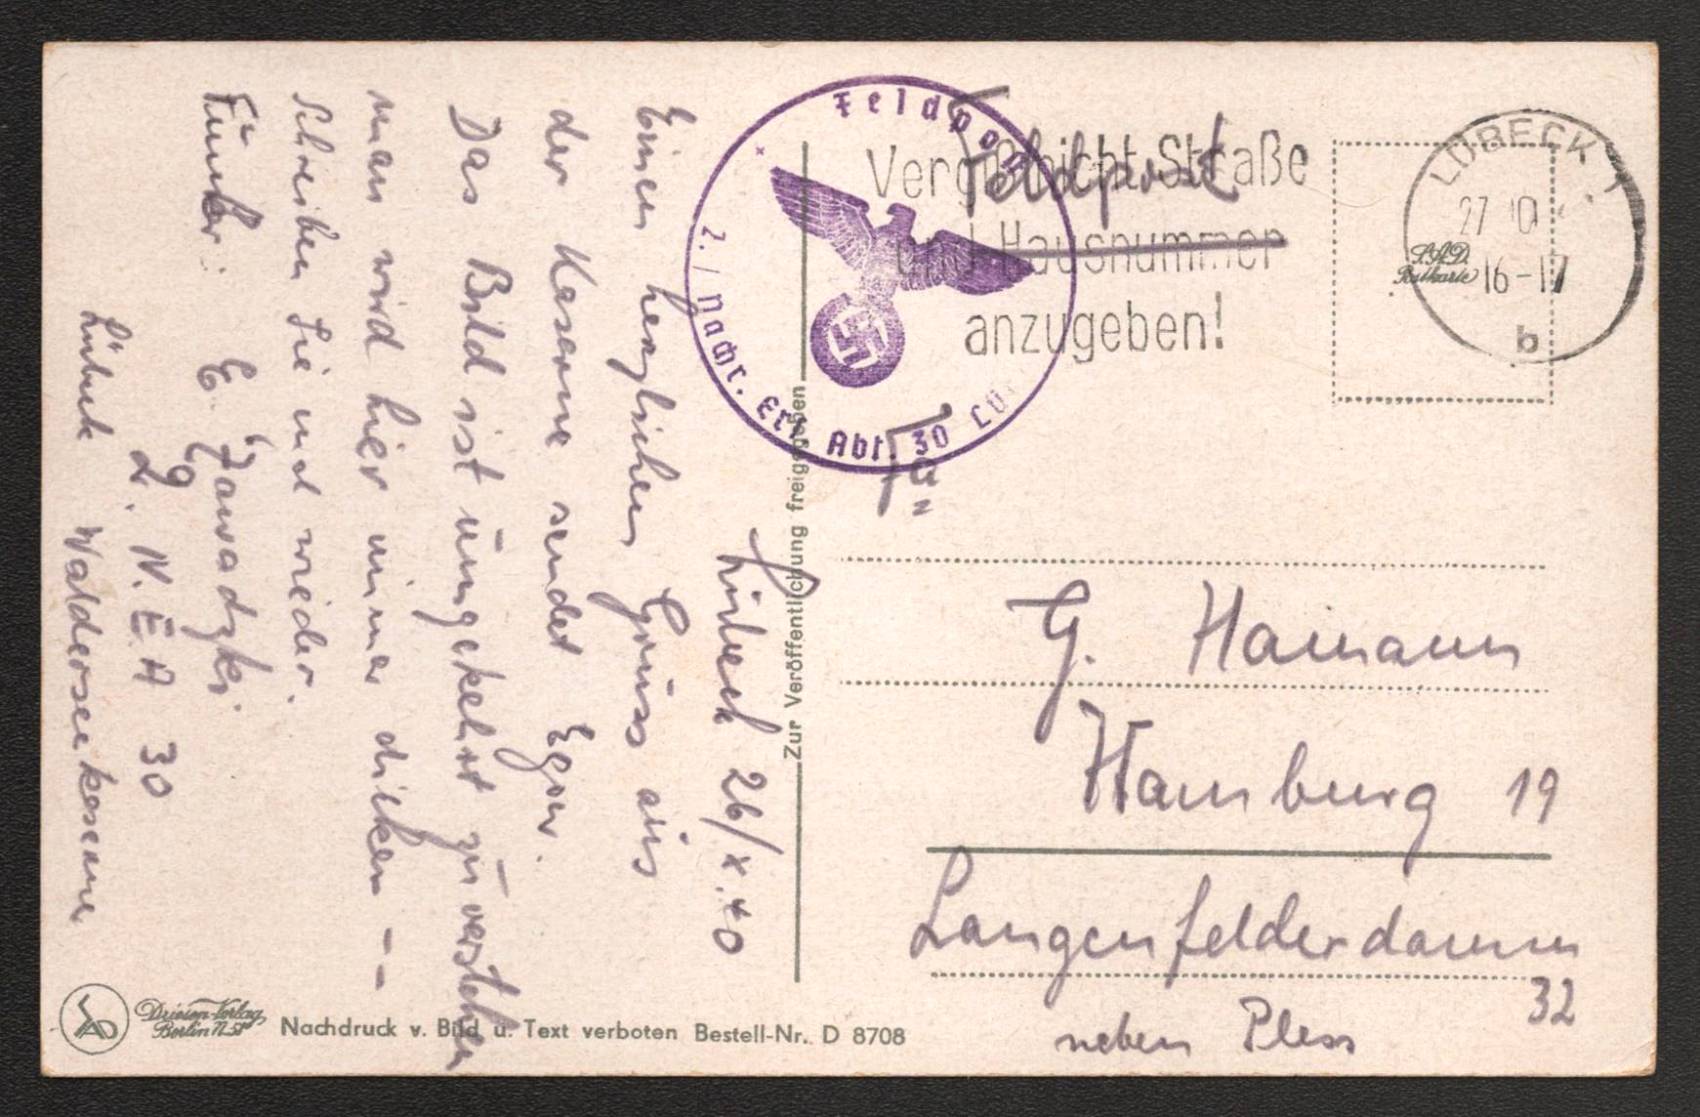 Lübeck 26/X.40
Einen herzlichen Grüss aüs
der Kaserne sendet Egon.
Das Bild ist üngekehrt zü verstehen
man wird hier immer dicker --
Schreiben Sie und wieder.
Fünker E. Zawadzki
2. N.E.A 30
Lübeck Walderseekaserne
Feldpost
2. / Nachr. Ers. Abt. 30
Vergiß nicht Straße
und Hausnummer
anzugeben!
Feldpost
LÜBECK 1
27 10
16-17
b
S.A.D.
Postkarte
Fa.
G. Hamann
Hamburg 19
Langenfelderdamm
32
neben Pless
Zur Veröffentlichung freigegeben
Driesen-Verlag
Berlin
Nachdruck v. Bild u. Text verboten Bestell-Nr. D 8708